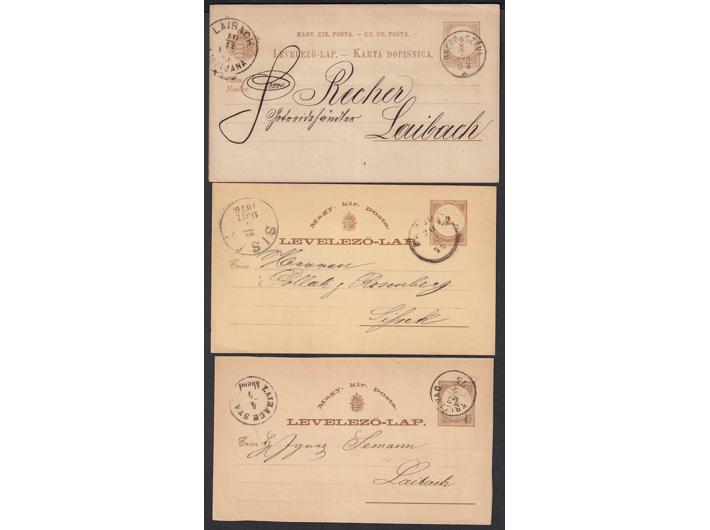 LAIBACH
LJUBLJANA
MAGY. KIR. POSTA. – KR. UG. POŠTA.
LEVELEZŐ-LAP. – KARTA DOPISNICA.
2
Herrn
Recher
Getreidehändler
Laibach
SIS
1878
Magy. kir. posta.
LEVELEZŐ-LAP.
2
Czim
Herren
Pollak & Rosenberg
Sissek
LAIBACH STA
Abend
Magy. kir. posta.
LEVELEZŐ-LAP.
2
Czim
Ignaz Semann
Laibach